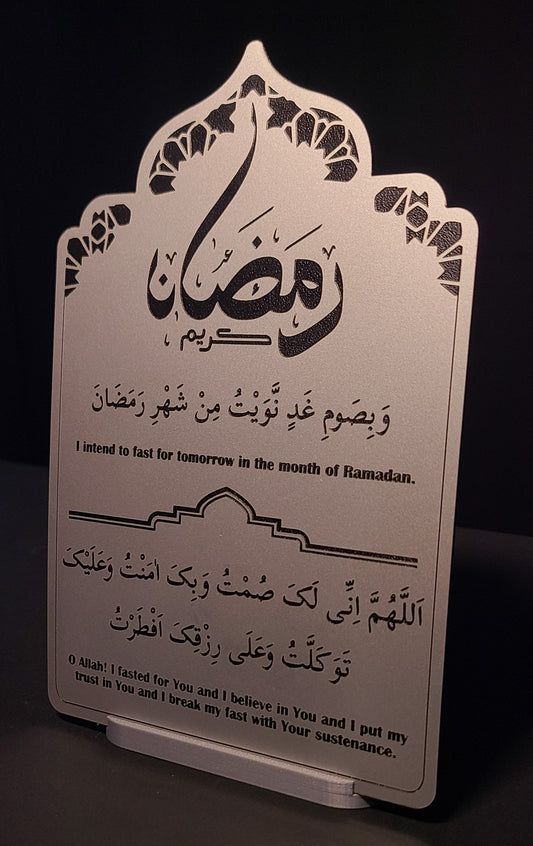 رمضان
كريم
وَبِصَومِ غَدٍ نَّوَيْتُ مِنْ شَهْرِ رَمَضَانَ
I intend to fast for tomorrow in the month of Ramadan.
اَللَّهُمَّ اِنِّی لَکَ صُمْتُ وَبِکَ اٰمَنْتُ وَعَلَیْکَ
تَوَکَلَّتُ وَعَلَی رِزْقِکَ اَفْطَرْتُ
O Allah! I fasted for You and I believe in You and I put my
trust in You and I break my fast with Your sustenance.